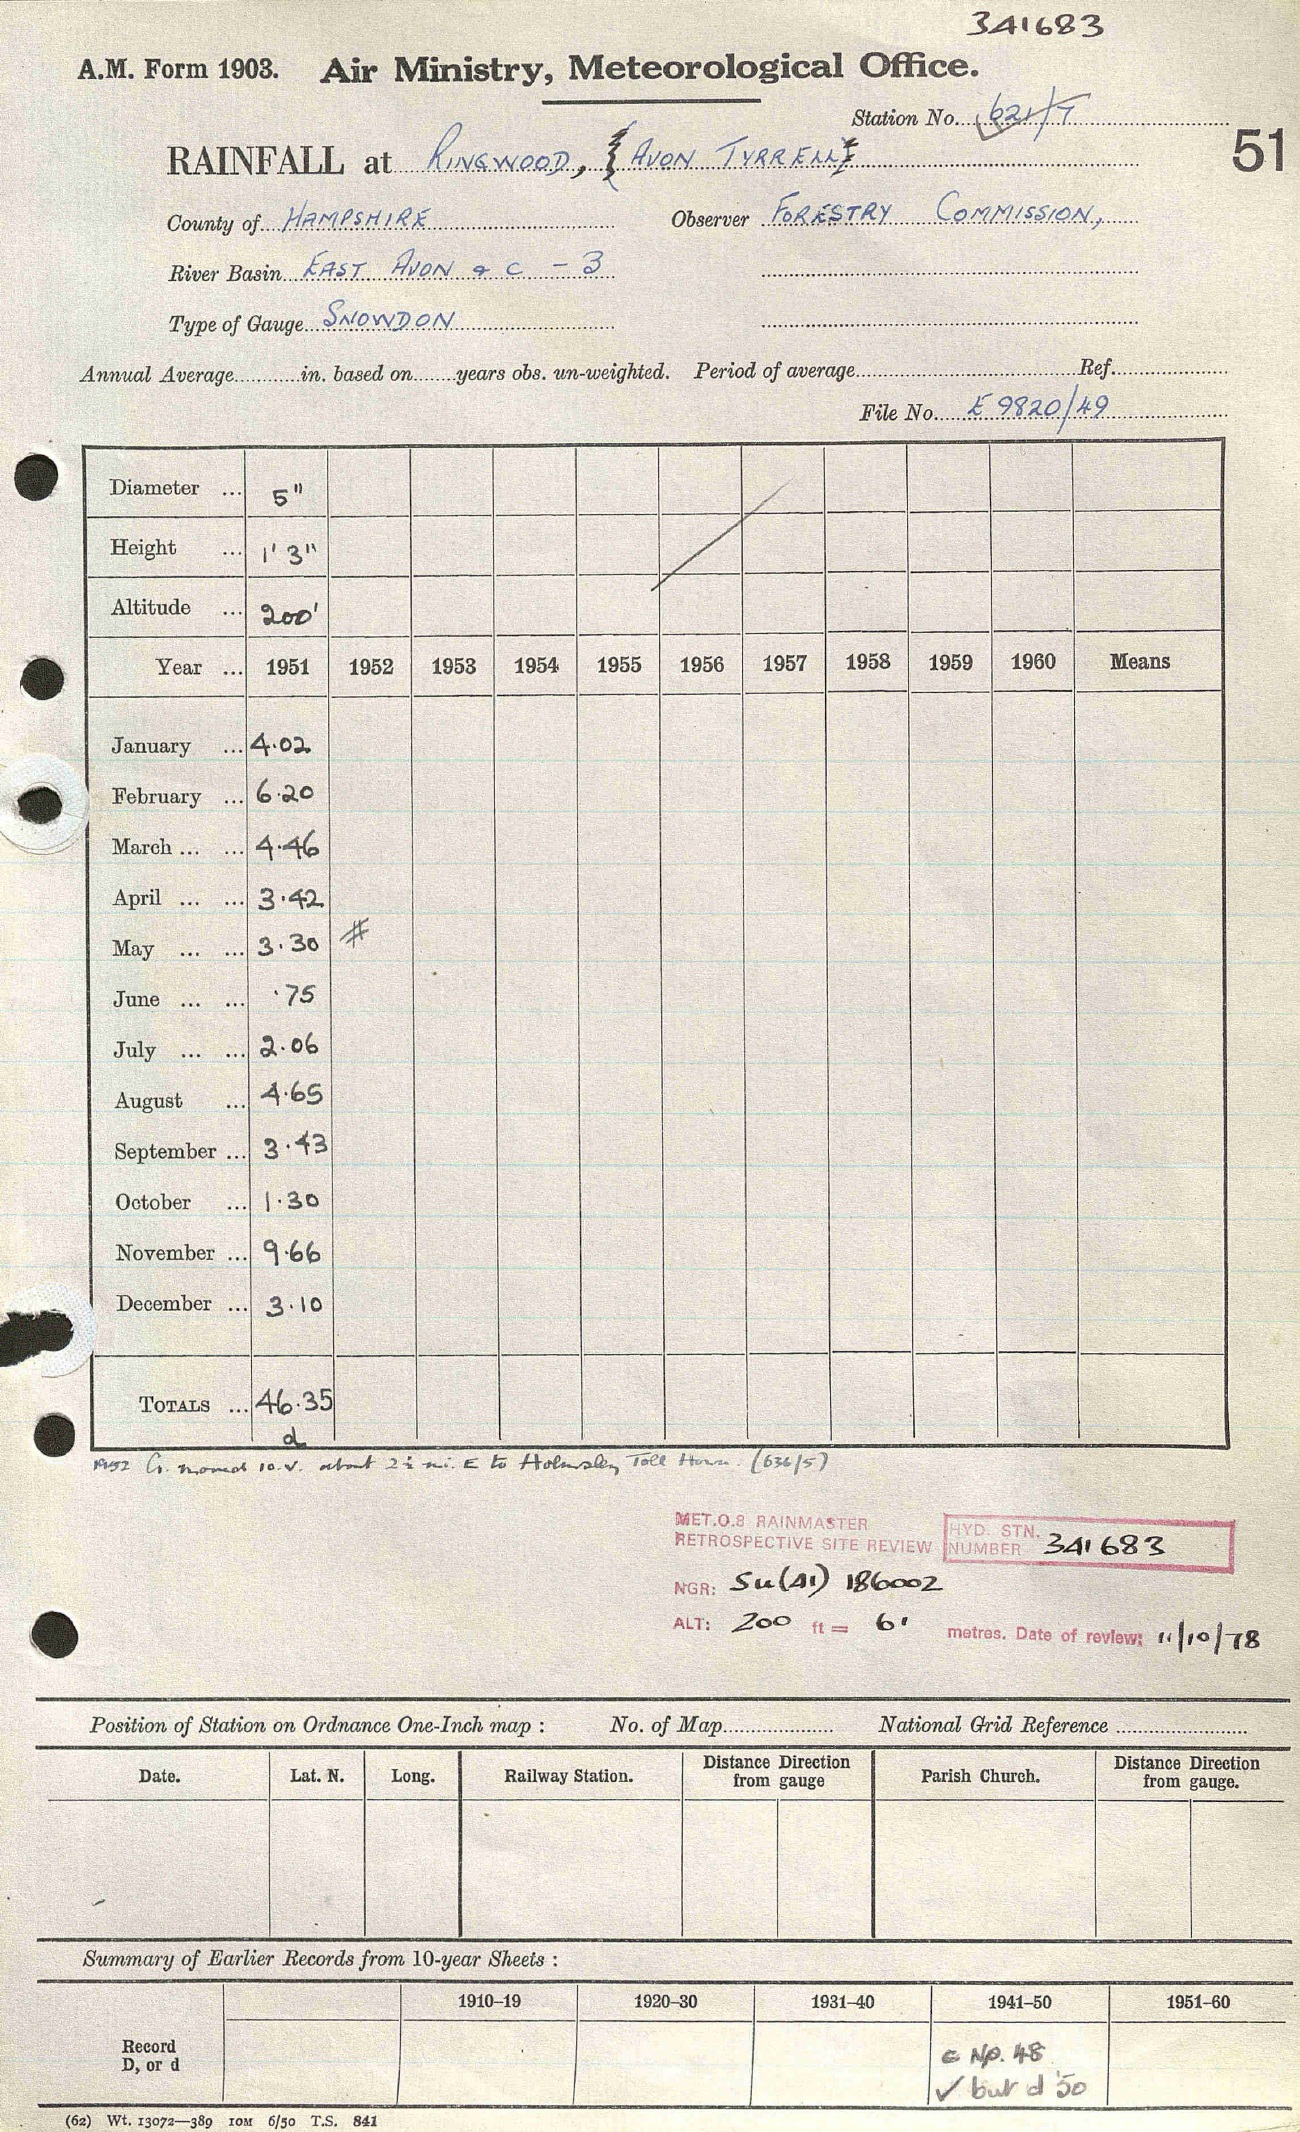 341683
A.M. Form 1903. Air Ministry, Meteorological Office.
Station No. 621/7
RAINFALL at RINGWOOD, (AVON TYRRELL)
51
County of HAMPSHIRE Observer FORESTRY COMMISSION,
River Basin EAST AVON & C - 3
Type of Gauge SNOWDON
Annual Average............in. based on.......years obs. un-weighted. Period of average.................Ref.................
File No. E 9820/49
Diameter ... 5"
Height ... 1' 3"
Altitude ... 200'
Year ... 1951 1952 1953 1954 1955 1956 1957 1958 1959 1960 Means
January ... 4.02
February ... 6.20
March ... ... 4.46
April ... ... 3.42
May ... ... 3.30 #
June ... ... .75
July ... ... 2.06
August ... 4.65
September ... 3.43
October ... 1.30
November ... 9.66
December ... 3.10
TOTALS ... 46.35
d
1952 G. moved 10.V. about 2½ mi. E to Holmsley Toll House. (636/5)
MET.O.8 RAINMASTER
RETROSPECTIVE SITE REVIEW
HYD. STN. NUMBER 341683
NGR: SU(41) 186002
ALT: 200 ft = 61 metres. Date of review: 11/10/78
Position of Station on Ordnance One-Inch map : No. of Map.................... National Grid Reference ....................
Date. Lat. N. Long. Railway Station. Distance Direction from gauge Parish Church. Distance Direction from gauge.
Summary of Earlier Records from 10-year Sheets :
1910–19 1920–30 1931–40 1941–50 1951–60
Record
D, or d
c Np. 48
✓ but d '50
(62) Wt. 13072—389 10M 6/50 T.S. 841